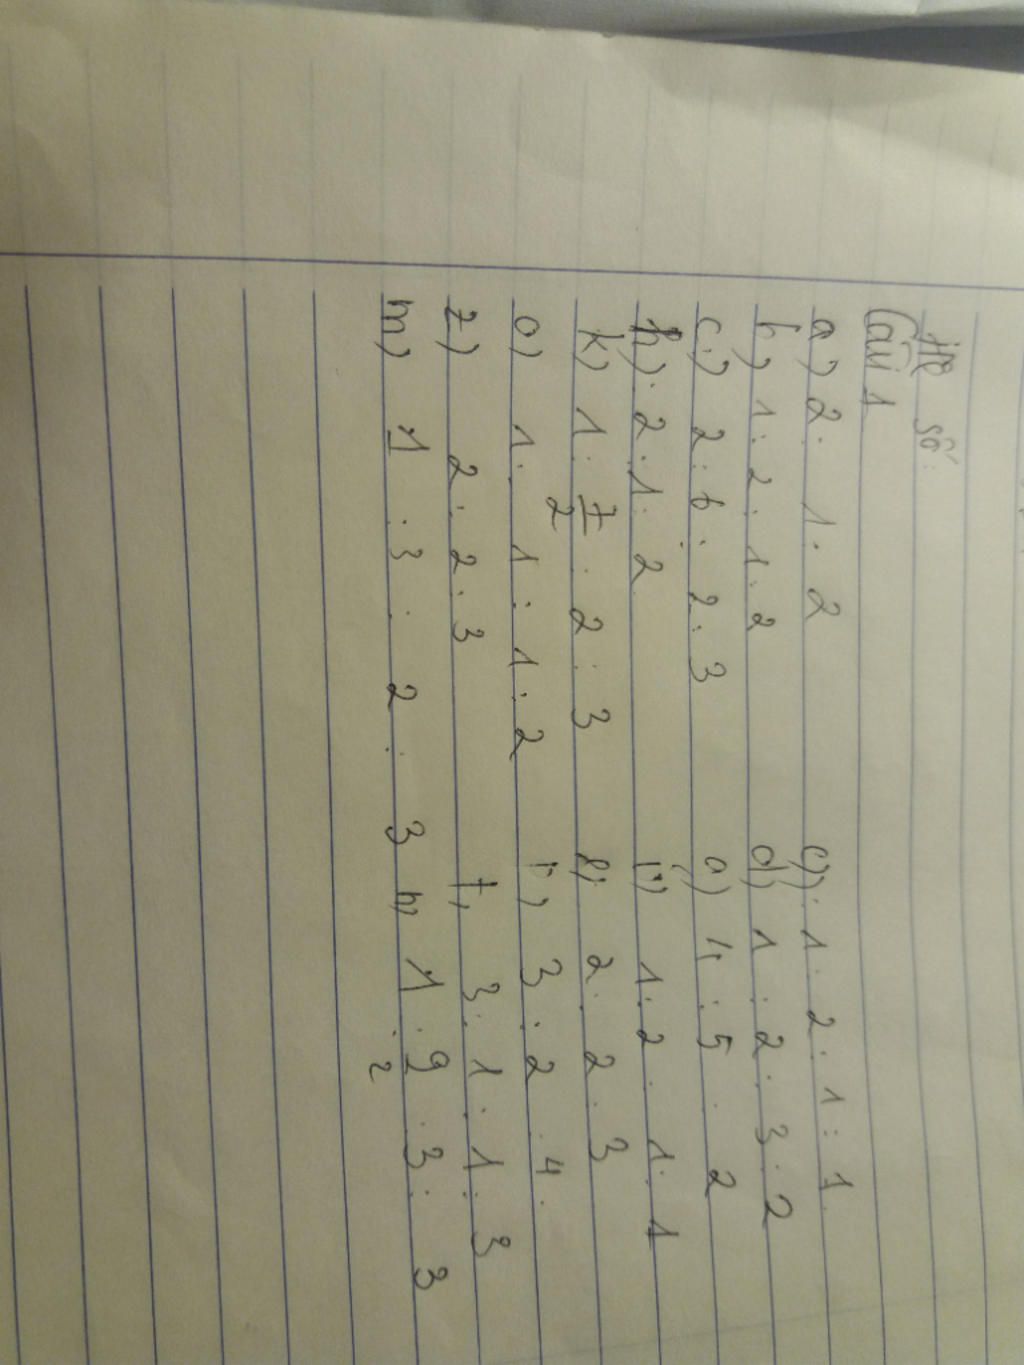 Hệ số:
Câu 1
a) 2 : 1 : 2 c) : 1 : 2 : 1 : 1
b) 1 : 2 : 1 : 2 d) 1 : 2 : 3 : 2
c) 2 : 6 : 2 : 3 a) 4 : 5 : 2
h) : 2 : 1 : 2 1 : 2 : 1 : 1
k) 1 : 7/2 : 2 : 3 l) 2 : 2 : 3
o) 1 : 1 : 1 : 2 r) 3 : 2 : 4 :
z) 2 : 2 : 3 t, 3 : 1 : 1 : 3
m) 1 : 3 : 2 : 3 n, 1 : 9 : 3 : 3
2